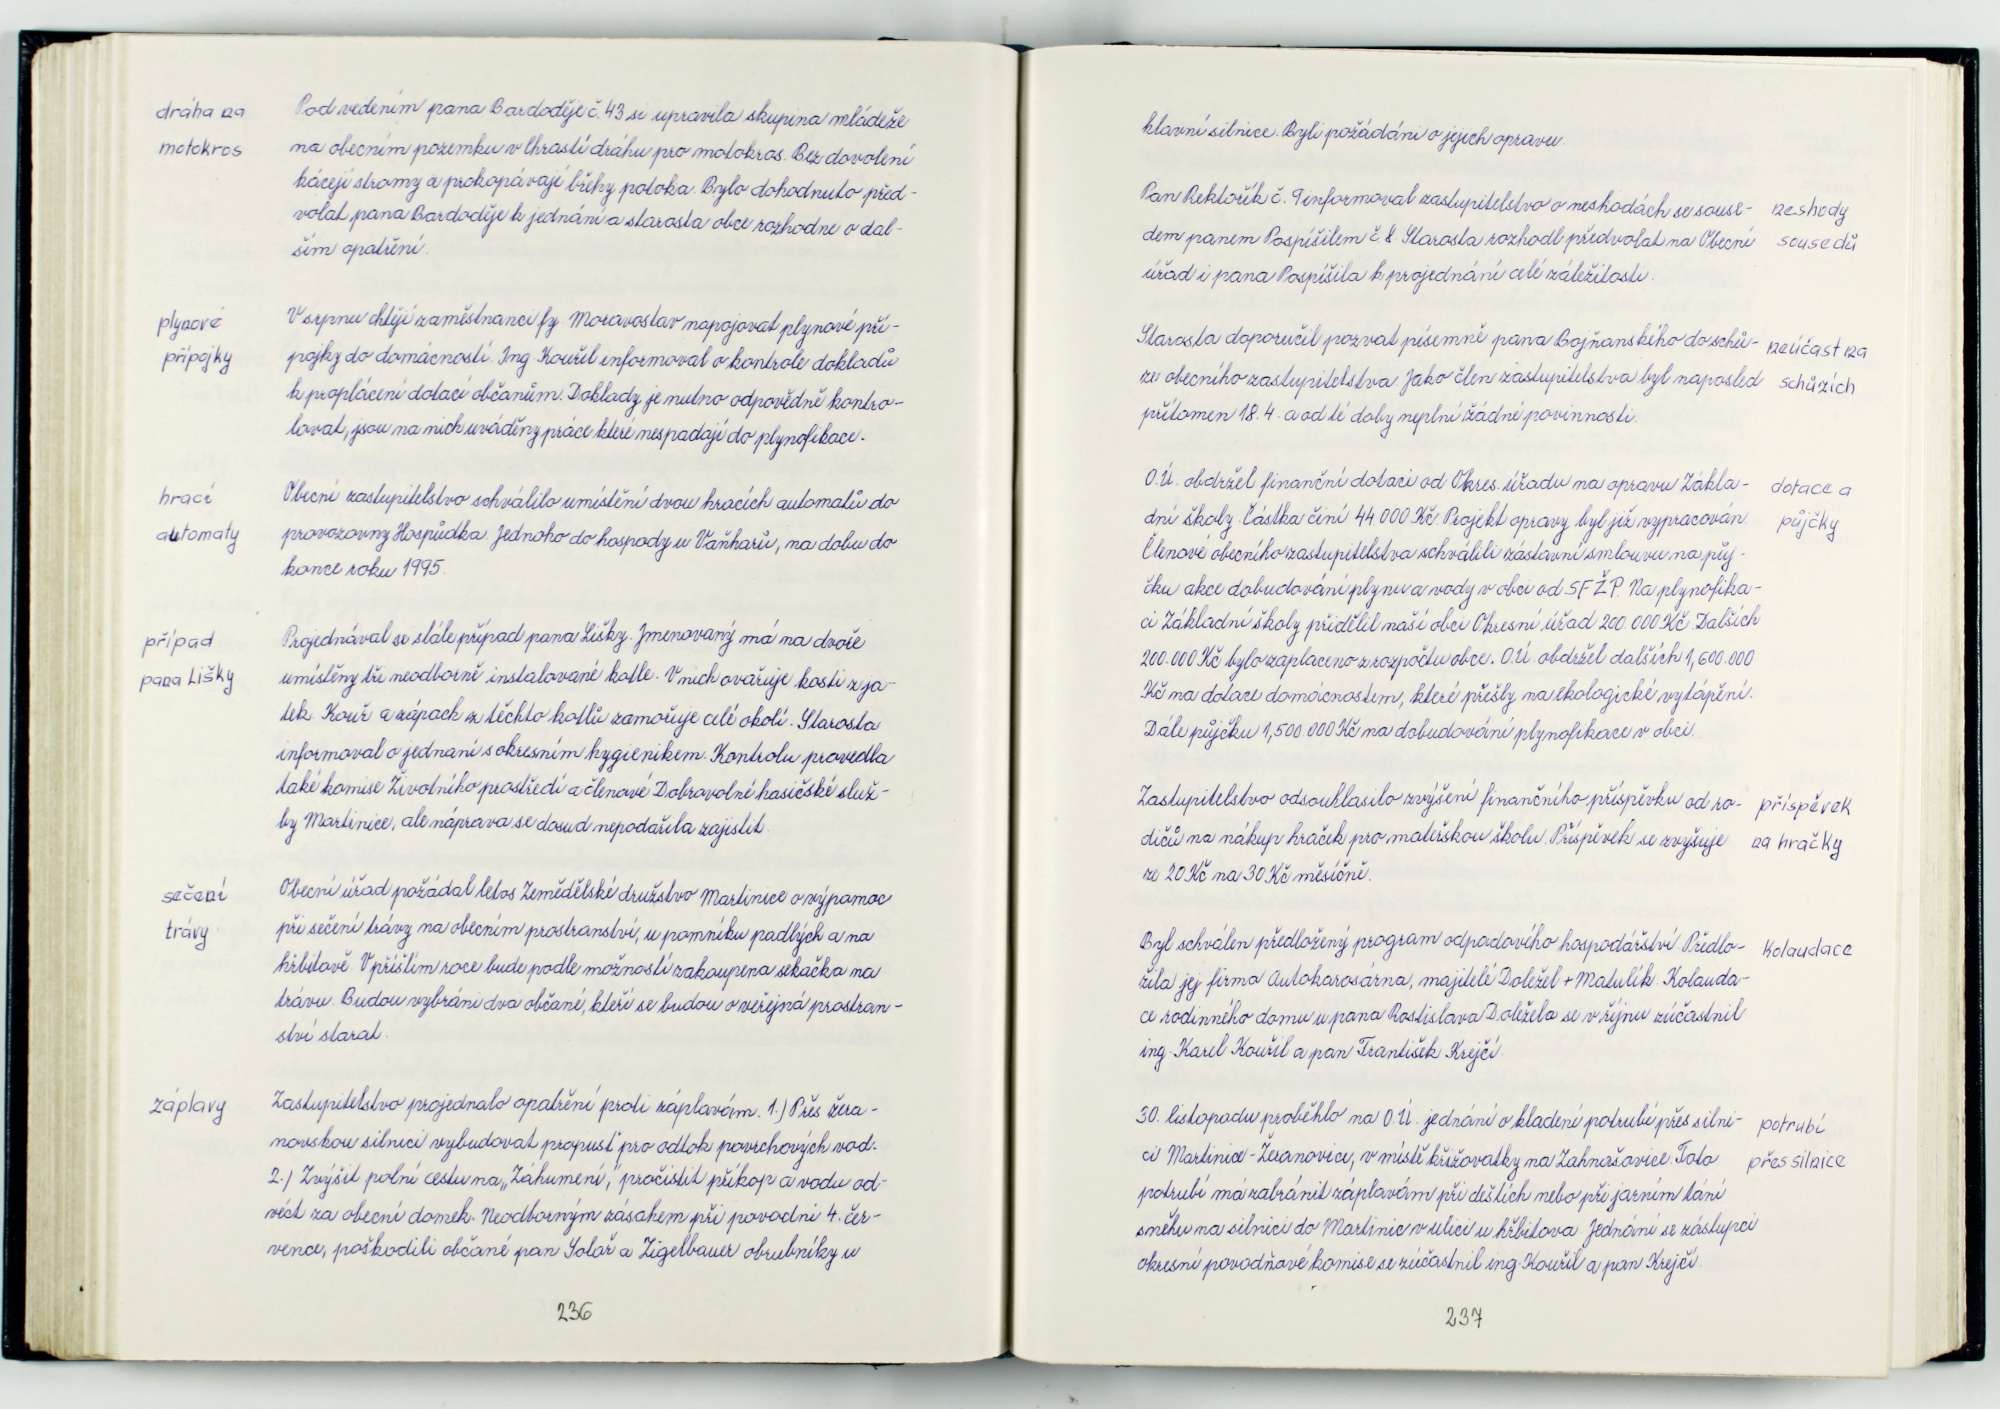 dráha na
motokros
Pod vedením pana Bardoděje č. 43 si upravila skupina mládeže
na obecním pozemku v Chrastí dráhu pro motokros. Bez dovolení
kácejí stromy a prokopávají břehy potoka. Bylo dohodnuto před-
volat pana Bardoděje k jednání a starosta obce rozhodne o dal-
ším opatření.
plynové
přípojky
V srpnu chtějí zaměstnanci fy. Moravostav napojovat plynové pří-
pojky do domácností. Ing Kouřil informoval o kontrole dokladů
k proplácení dotací občanům. Doklady je nutno odpovědně kontro-
lovat, jsou na nich uváděny práce které nespadají do plynofikace.
hrací
automaty
Obecní zastupitelstvo schválilo umístění dvou hracích automatů do
provozovny Hospůdka. Jednoho do hospody u Vaňharů, na dobu do
konce roku 1995.
případ
pana Lišky
Projednával se stále případ pana Lišky. Jmenovaný má na dvoře
umístěny tři neodborně instalované kotle. V nich ovařuje kosti z ja-
tek. Kouř a zápach z těchto kotlů zamořuje celé okolí. Starosta
informoval o jednání s okresním hygienikem. Kontrolu provedla
také komise Životního prostředí a členové Dobrovolné hasičské služ-
by Martinice, ale náprava se dosud nepodařila zajistit.
sečení
trávy
Obecní úřad požádal letos Zemědělské družstvo Martinice o výpomoc
při sečení trávy na obecním prostranství, u pomníku padlých a na
hřbitově. V příštím roce bude podle možností zakoupena sekačka na
trávu. Budou vybráni dva občané, kteří se budou o veřejná prostran-
ství starat.
záplavy
Zastupitelstvo projednalo opatření proti záplavám. 1.) Přes žera-
novskou silnici vybudovat propusť pro odtok povrchových vod.
2.) Zvýšit polní cestu na „Záhumení“, pročistit příkop a vodu od-
vést za obecní domek. Neodborným zásahem při povodni 4. čer-
vence, poškodili občané pan Solař a Zigelbauer obrubníky u
236
hlavní silnice. Byli požádáni o jejich opravu.
Pan Rektořík č. 9 informoval zastupitelstvo o neshodách se souse-
dem panem Pospíšilem č. 8 Starosta rozhodl předvolat na Obecní
úřad i pana Pospíšila k projednání celé záležitosti.
neshody
sousedů
Starosta doporučil pozvat písemně pana Bojňanského do schů-
ze obecního zastupitelstva. Jako člen zastupitelstva byl naposled
přítomen 18. 4. a od té doby neplní žádné povinnosti.
neúčast na
schůzích
O.Ú. obdržel finanční dotaci od Okres. úřadu na opravu Zákla-
dní školy. Částka činí 44.000 Kč. Projekt opravy byl již vypracován.
Členové obecního zastupitelstva schválili zástavní smlouvu na půj-
čku akce dobudování plynu a vody v obci od SFŽP. Na plynofika-
ci Základní školy přidělil naší obci Okresní úřad 200.000 Kč. Dalších
200.000 Kč bylo zaplaceno z rozpočtu obce. O.Ú. obdržel dalších 1,600.000
Kč na dotace domácnostem, které přešly na ekologické vytápění.
Dále půjčku 1,500.000 Kč na dobudování plynofikace v obci.
dotace a
půjčky
Zastupitelstvo odsouhlasilo zvýšení finančního příspěvku od ro-
dičů na nákup hraček pro mateřskou školu. Příspěvek se zvyšuje
ze 20 Kč na 30 Kč měsíčně.
příspěvek
na hračky
Byl schválen předložený program odpadového hospodářství. Předlo-
žila jej firma Autokarosárna, majitelé Doležel + Matulík. Kolauda-
ce rodinného domu u pana Rostislava Doležela se v říjnu zúčastnil
ing. Karel Kouřil a pan František Krejčí.
kolaudace
30. listopadu proběhlo na O.Ú. jednání o kladení potrubí přes silni-
ci Martinice-Žeranovice, v místě křižovatky na Zahnašovice. Toto
potrubí má zabránit záplavám při deštích nebo při jarním tání
sněhu na silnici do Martinic v ulici u hřbitova. Jednání se zástupci
okresní povodňové komise se zúčastnil ing. Kouřil a pan Krejčí.
potrubí
přes silnice
237